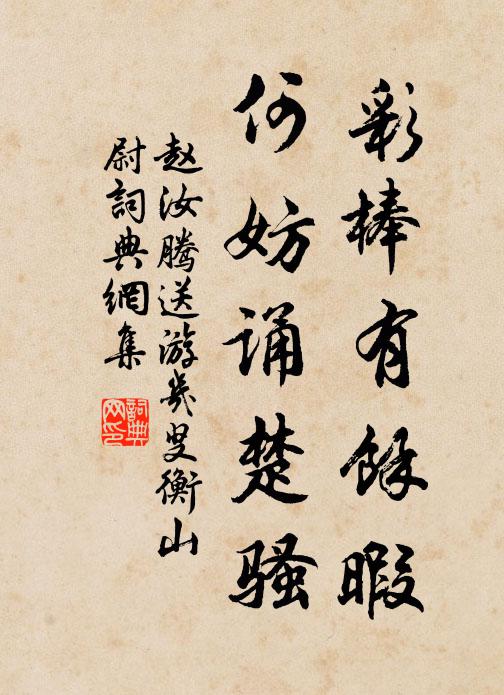 彩棒有餘暇
何妨诵楚骚
赵汝腾送游幾叟衡山
尉詞典網集
詞典网印